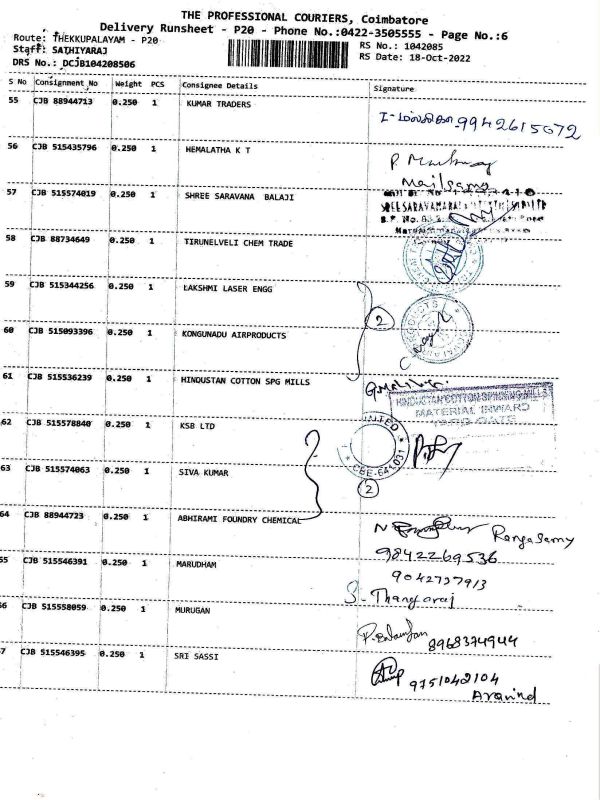 THE PROFESSIONAL COURIERS, Coimbatore
Delivery Runsheet - P20 - Phone No.:0422-3505555 - Page No.:6
Route: THEKKUPALAYAM - P20
Staff: SATHIYARAJ
RS No.: 1042085
RS Date: 18-Oct-2022
DRS No.: DCJB104208506
S No Consignment No Weight PCS Consignee Details Signature
55 CJB 88944713 0.250 1 KUMAR TRADERS
9942615072
56 CJB 515435796 0.250 1 HEMALATHA K T
Mailsamy
57 CJB 515574019 0.250 1 SHREE SARAVANA BALAJI
58 CJB 88734649 0.250 1 TIRUNELVELI CHEM TRADE
59 CJB 515344256 0.250 1 LAKSHMI LASER ENGG
2
60 CJB 515093396 0.250 1 KONGUNADU AIRPRODUCTS
61 CJB 515536239 0.250 1 HINDUSTAN COTTON SPG MILLS
HINDUSTAN COTTON SPINNING MILLS
MATERIAL INWARD
62 CJB 515578840 0.250 1 KSB LTD
CBE-641 031
63 CJB 515574063 0.250 1 SIVA KUMAR
2
64 CJB 88944723 0.250 1 ABHIRAMI FOUNDRY CHEMICAL
Rangasamy
9842269536
55 CJB 515546391 0.250 1 MARUDHAM
9042737913
S. Thangaraj
56 CJB 515558059 0.250 1 MURUGAN
8968374944
7 CJB 515546395 0.250 1 SRI SASSI
9751042104
Aravind